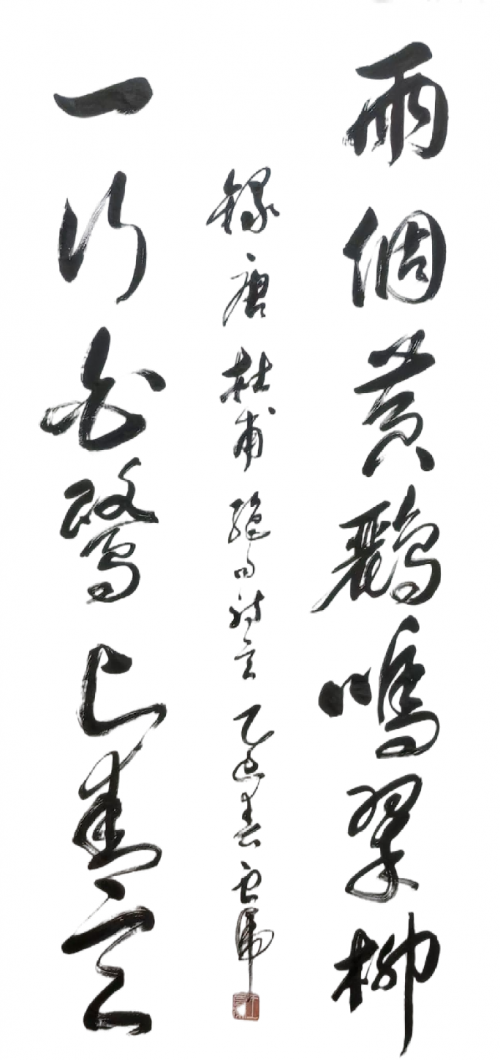 兩個黃鸝鳴翠柳
一行白鷺上青天
錄唐杜甫絕句詩言乙巳春